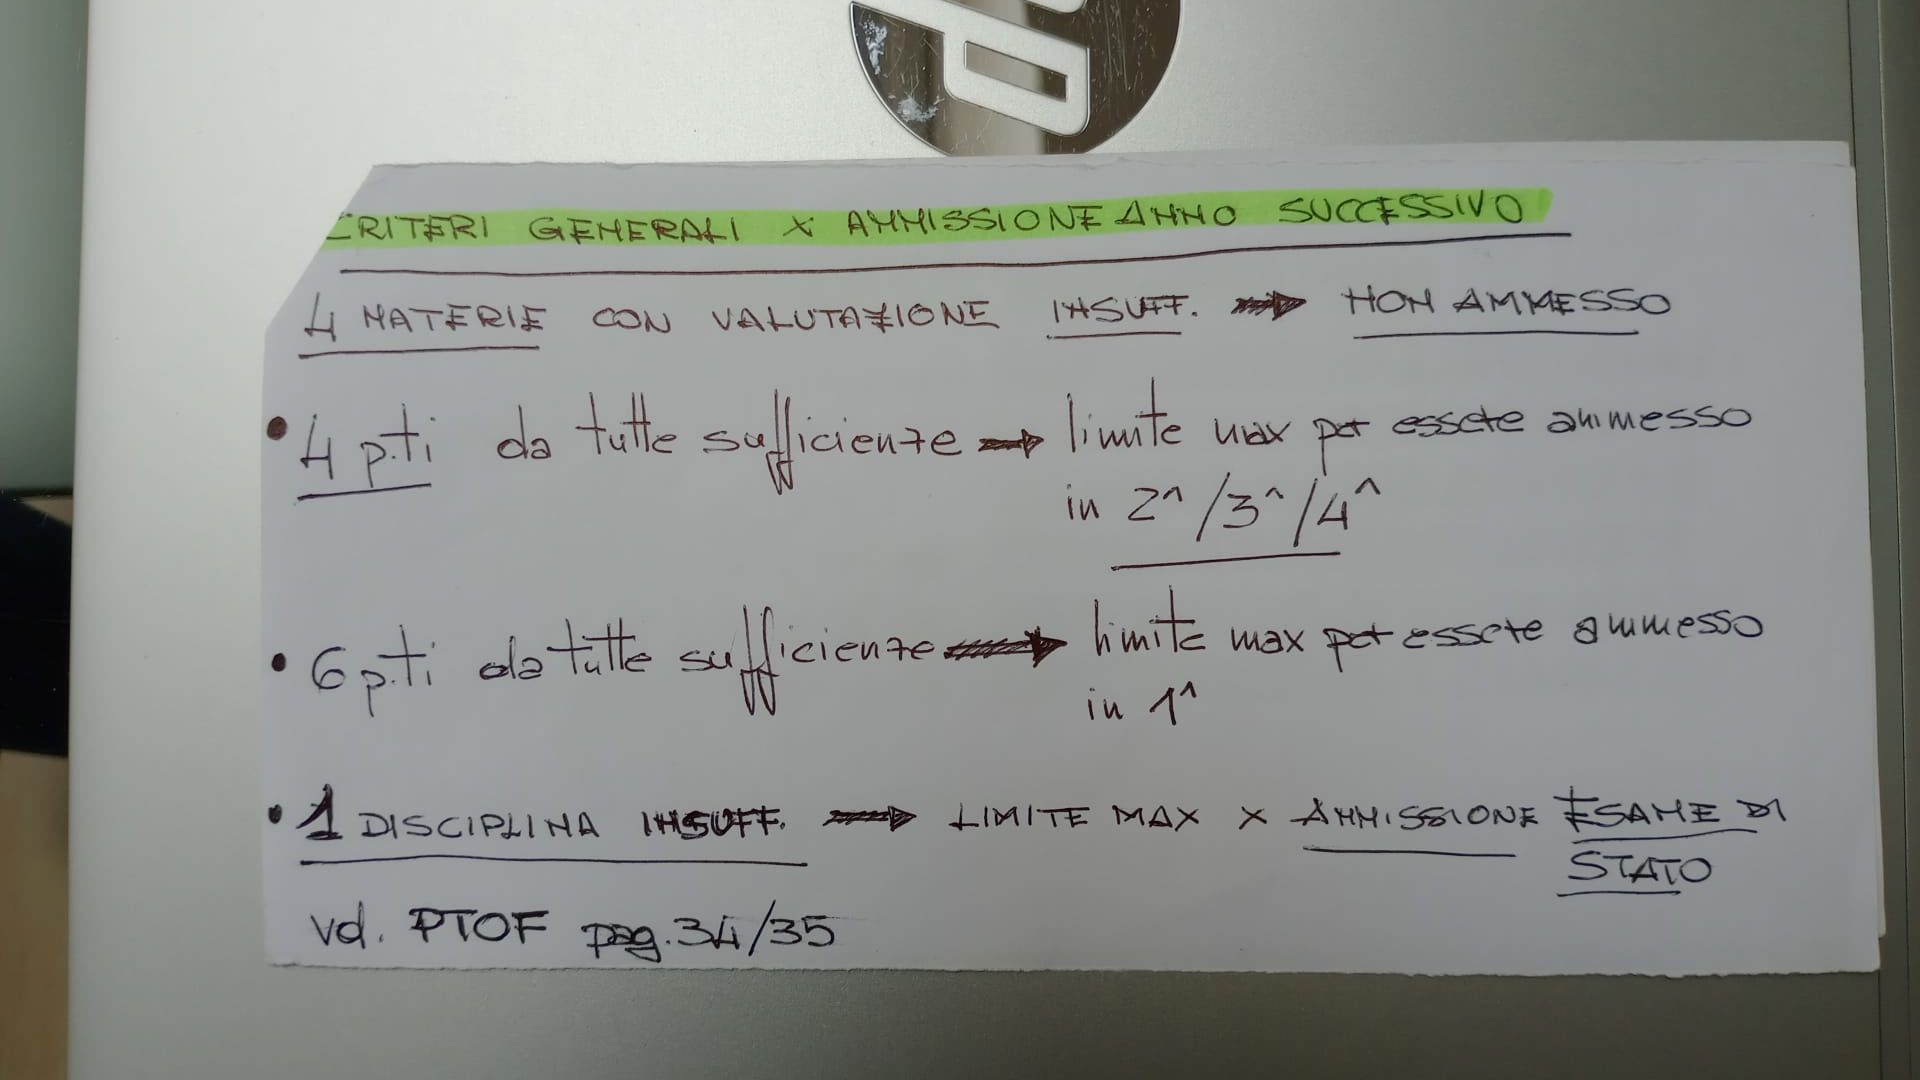 CRITERI GENERALI X AMMISSIONE ANNO SUCCESSIVO
4 MATERIE CON VALUTAZIONE INSUFF. → NON AMMESSO
• 4 p.ti da tutte sufficienze → limite max per essere ammesso
in 2^/3^/4^
• 6 p.ti da tutte sufficienze → limite max per essere ammesso
in 1^
• 1 DISCIPLINA INSUFF. → LIMITE MAX X AMMISSIONE ESAME DI
STATO
vd. PTOF pag. 34/35